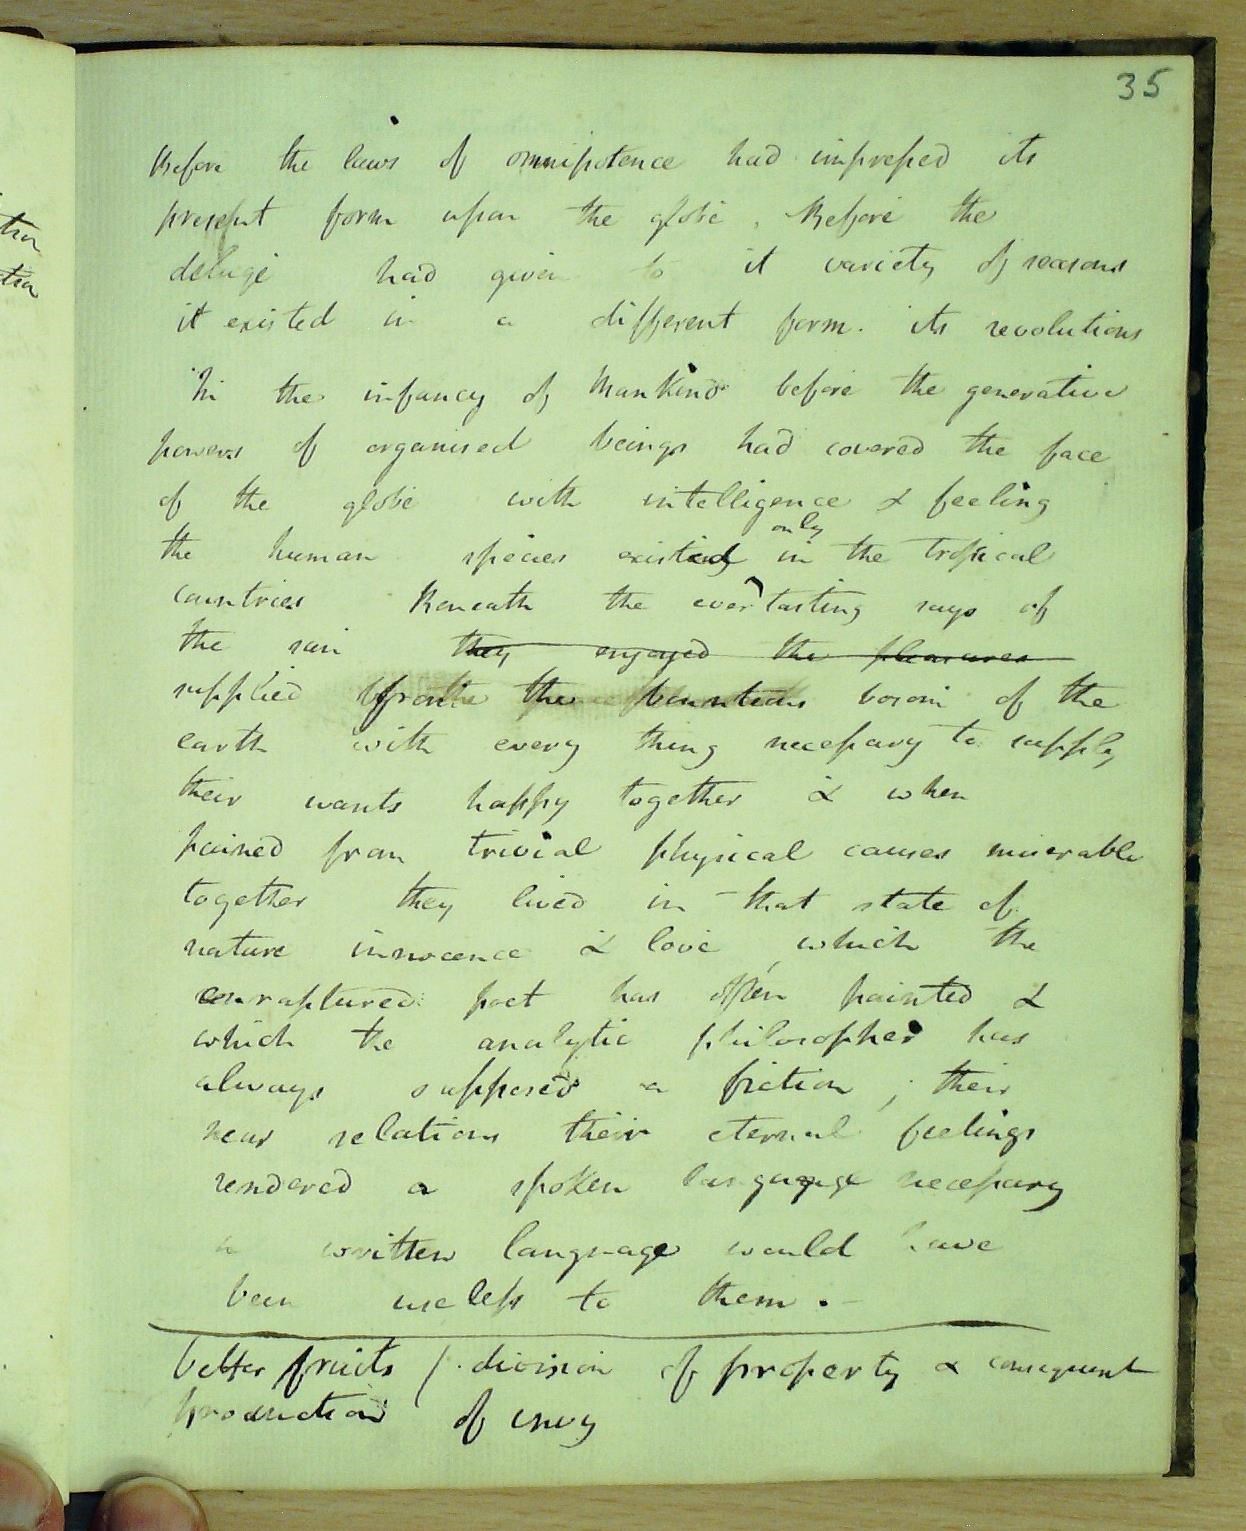 35
Before the laws of omnipotence had impressed its
present form upon the globe. Before the
deluge had given to it variety of seasons
it existed in a different form. its revolutions
In the infancy of Mankind before the generative
powers of organised beings had covered the face
of the globe with intelligence & feeling
only
the human species existed in the tropical
countries Beneath the everlasting rays of
the sun they enjoyed the pleasures
supplied from the bounteous bosom of the
earth with every thing necessary to supply
their wants happy together & when
pained from trivial physical causes miserable
together they lived in that state of
nature innocence & love, which the
enraptured poet has often painted &
which the analytic philosopher has
always supposed a fiction; their
near relations their eternal feelings
rendered a spoken language necessary
a written language would have
been useless to them. -
better fruits / division of property & consequent
production of envy